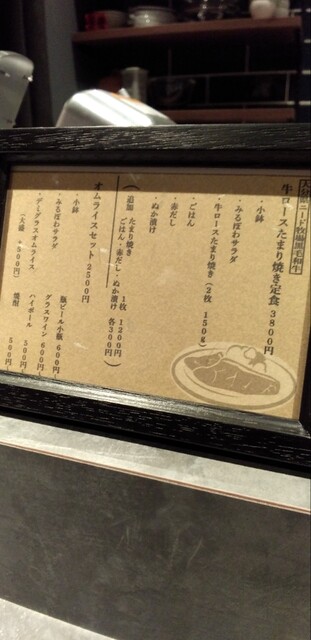 大分県ニード牧場黒毛和牛
牛ロースたまり焼き定食 3800円
・小鉢
・みるぽわサラダ
・牛ロースたまり焼き(2枚 150g)
・ごはん
・赤だし
・ぬか漬け
(追加 たまり焼き 1枚 1200円
ごはん・赤だし・ぬか漬け 各300円)
オムライスセット 2500円
・小鉢
・みるぽわサラダ
・デミグラスオムライス
(大盛 +500円)
瓶ビール小瓶 600円
グラスワイン 600円
ハイボール 500円
焼酎 500円